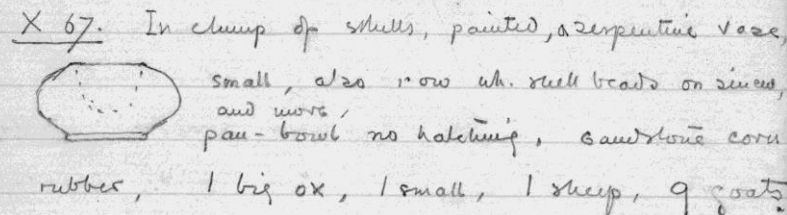 X 67. In clump of skulls, painted, a serpentine vase,
small, also row wh. shell beads on sinew,
and more,
pan-bowl no hatching, sandstone corn
rubber, 1 big ox, 1 small, 1 sheep, 9 goats.